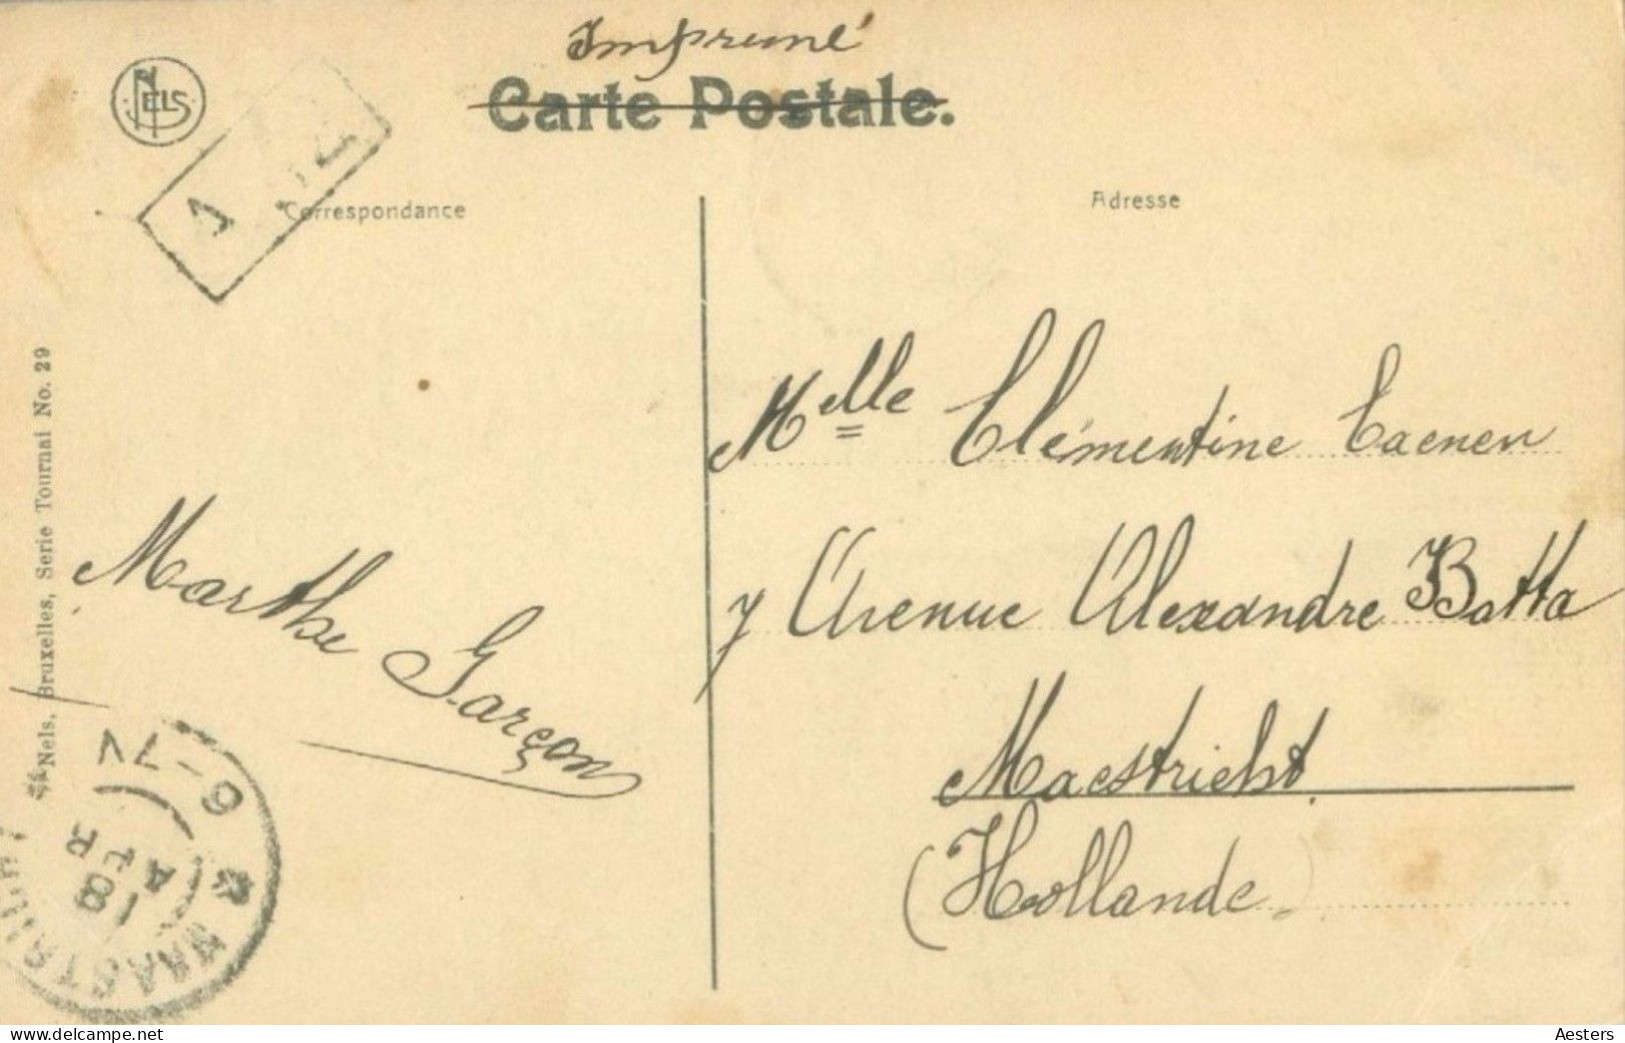 Imprimé
Carte Postale.
NELS
Correspondance
Adresse
Melle Clémentine Caenen
7 Avenue Alexandre Batta
Maestricht.
(Hollande)
Marthe Garçon
Nels, Bruxelles, Serie Tournai No. 29
6-7V
18
APR
MAASTRICHT
www.delcampe.net
Aesters